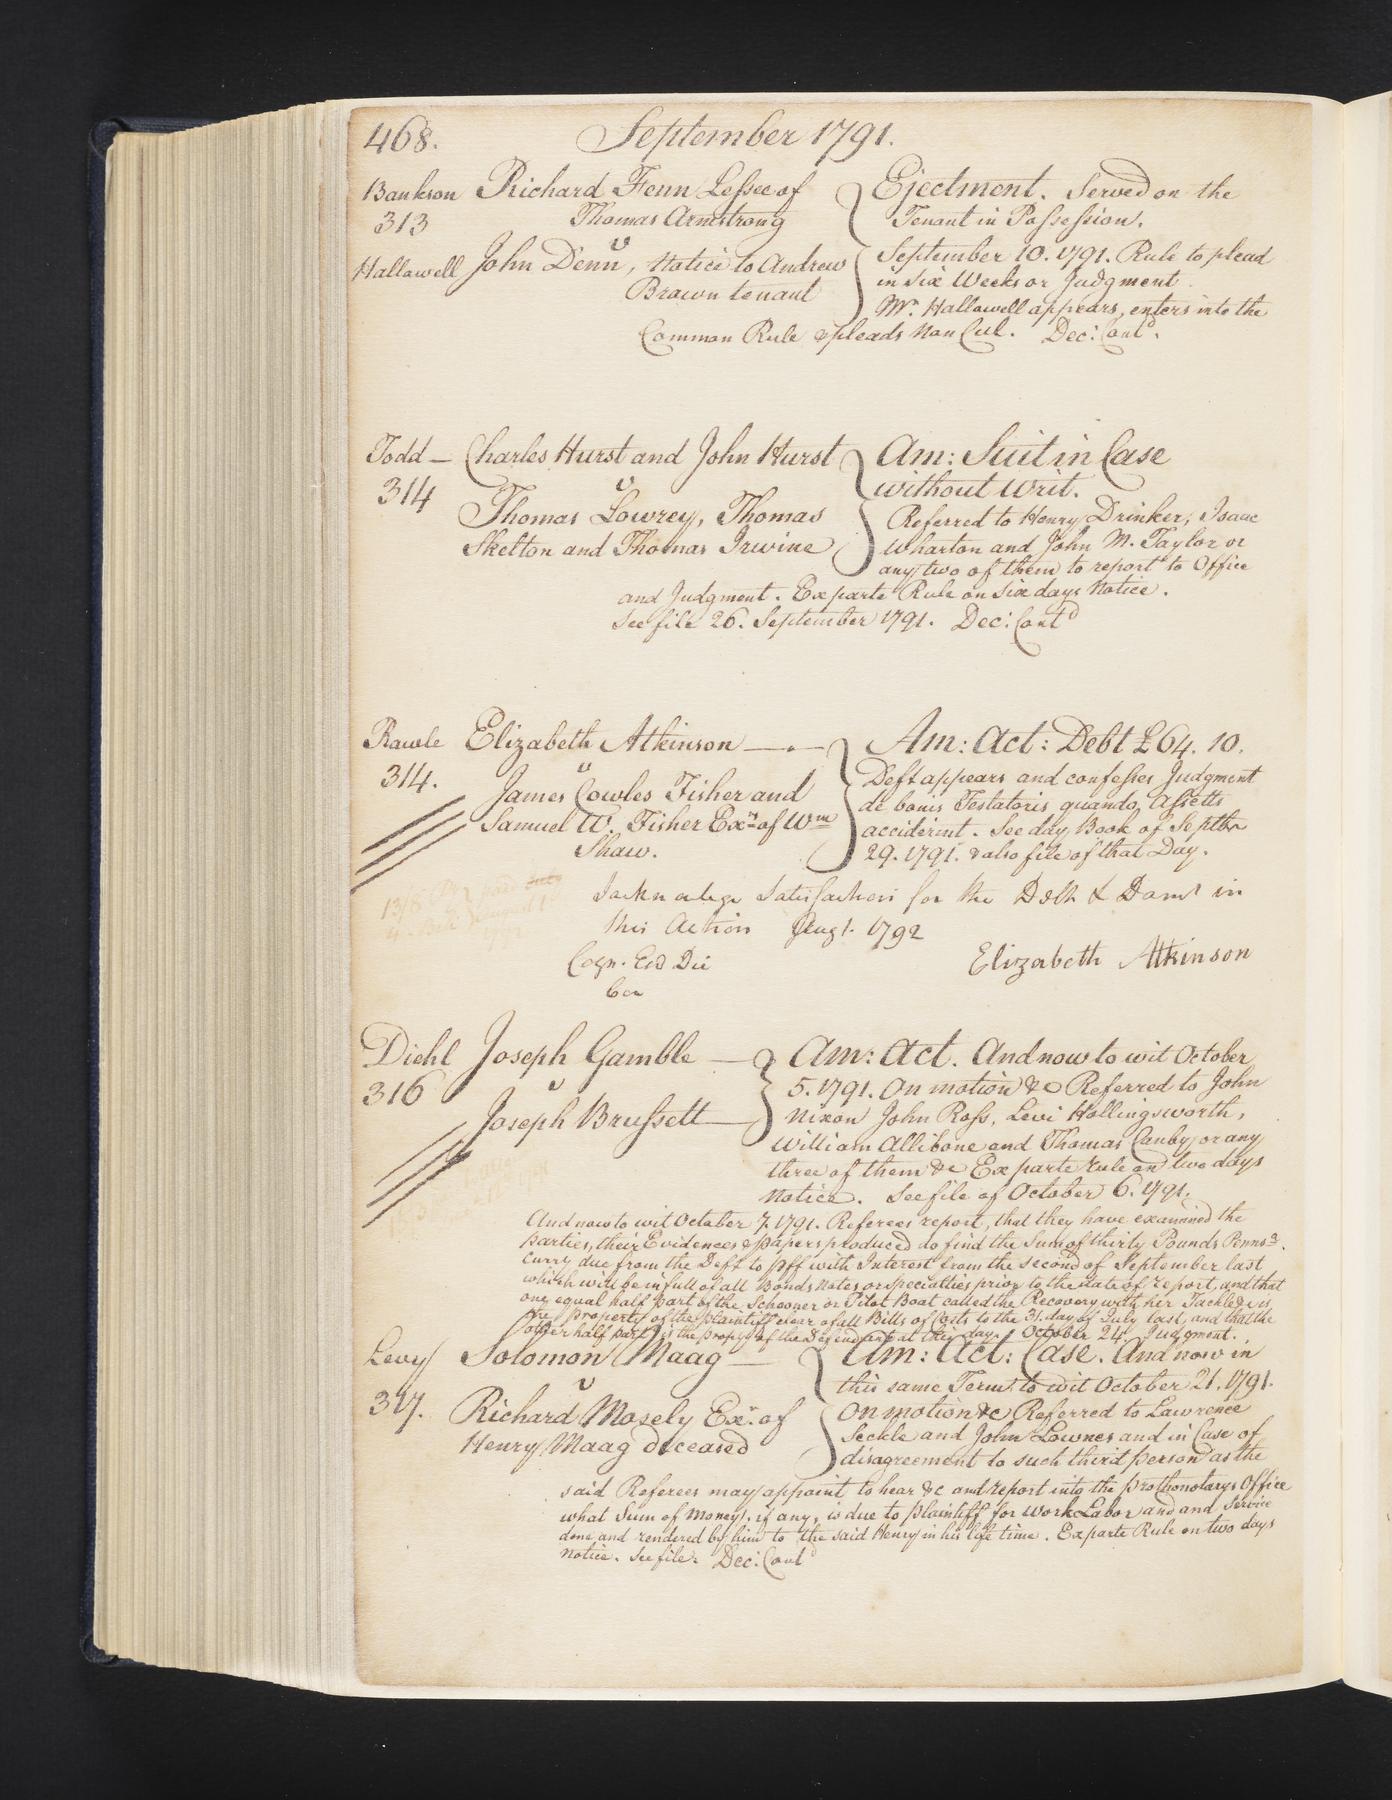 468. September 1791.
Bankson Richard Fenn Lessee of
313 Thomas Armstrong
v
Hallowell John Denn, Notice to Andrew
Brown tenant
Ejectment. Served on the
Tenant in Possession.
September 10. 1791. Rule to plead
in six Weeks or Judgment.
Mr. Hallowell appears, enters into the
Common Rule & pleads Non Cul. Dec: Contd.
Todd — Charles Hurst and John Hurst
314 v
Thomas Lowrey, Thomas
Skelton and Thomas Irwine
Am: Suit in Case
without Writ.
Referred to Henry Drinker, Isaac
Wharton and John M. Taylor or
any two of them to report to Office
and Judgment. Ex parte Rule on six days Notice.
See file 26. September 1791. Dec: Contd
Rawle Elizabeth Atkinson
314. v
James Cowles Fisher and
Samuel W. Fisher Exrs of Wm
Shaw.
Am: Act: Debt £64. 10.
Deft appears and confesses Judgment
de bonis Testatoris quando Assetts
acciderint. See day Book of Septbr
29. 1791. & also file of that Day.
I acknowlege Satisfaction for the Debt & Dams in
this Action Augt. 1792
Cogn. Eod Die Elizabeth Atkinson
Cor
Diehl Joseph Gamble —
316 v
Joseph Brussett —
Am: Act. And now to wit October
5. 1791. On motion &c Referred to John
Nixon John Ross, Levi Hollingsworth,
William Allibone and Thomas Canby or any
three of them &c Ex parte Rule on two days
Notice. See file of October 6. 1791.
And now to wit October 7. 1791. Referees report, that they have examined the
parties, their Evidences & papers produced do find the Sum of thirty Pounds Pennsa.
Curry due from the Deft to plff with Interest from the second of September last
which will be in full of all Bonds Notes or specialties prior to the date of report, and that
one equal half part of the Schooner or Pilot Boat called the Recovery with her Tackle &c is
the property of the plaintiff clear of all Bills of Costs to the 31. day of July last, and that the
other half part is the propy of the Defendant at this day. October 24. Judgment.
Levy Solomon Maag —
317. v
Richard Mosely Exr. of
Henry Maag deceased
Am: Act: Case. And now in
this same Term to wit October 21. 1791.
On motion &c Referred to Lawrence
Seckle and John Lownes and in Case of
disagreement to such third person as the
said Referees may appoint to hear &c and report into the Prothonotarys Office
what Sum of Money, if any, is due to plaintiff for Work Labor and and Service
done and rendered by him to the said Henry in his life time. Ex parte Rule on two days
Notice. See file. Dec: Contd